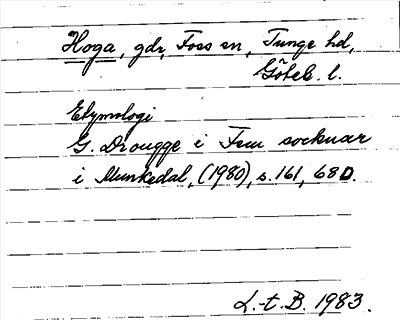 Hoga, gdr, Foss sn, Tunge hd,
Göteb. l.
Etymologi
G. Drougge i Fem socknar
i Munkedal, (1980), s. 161, 68D.
L.-t. B. 1983.